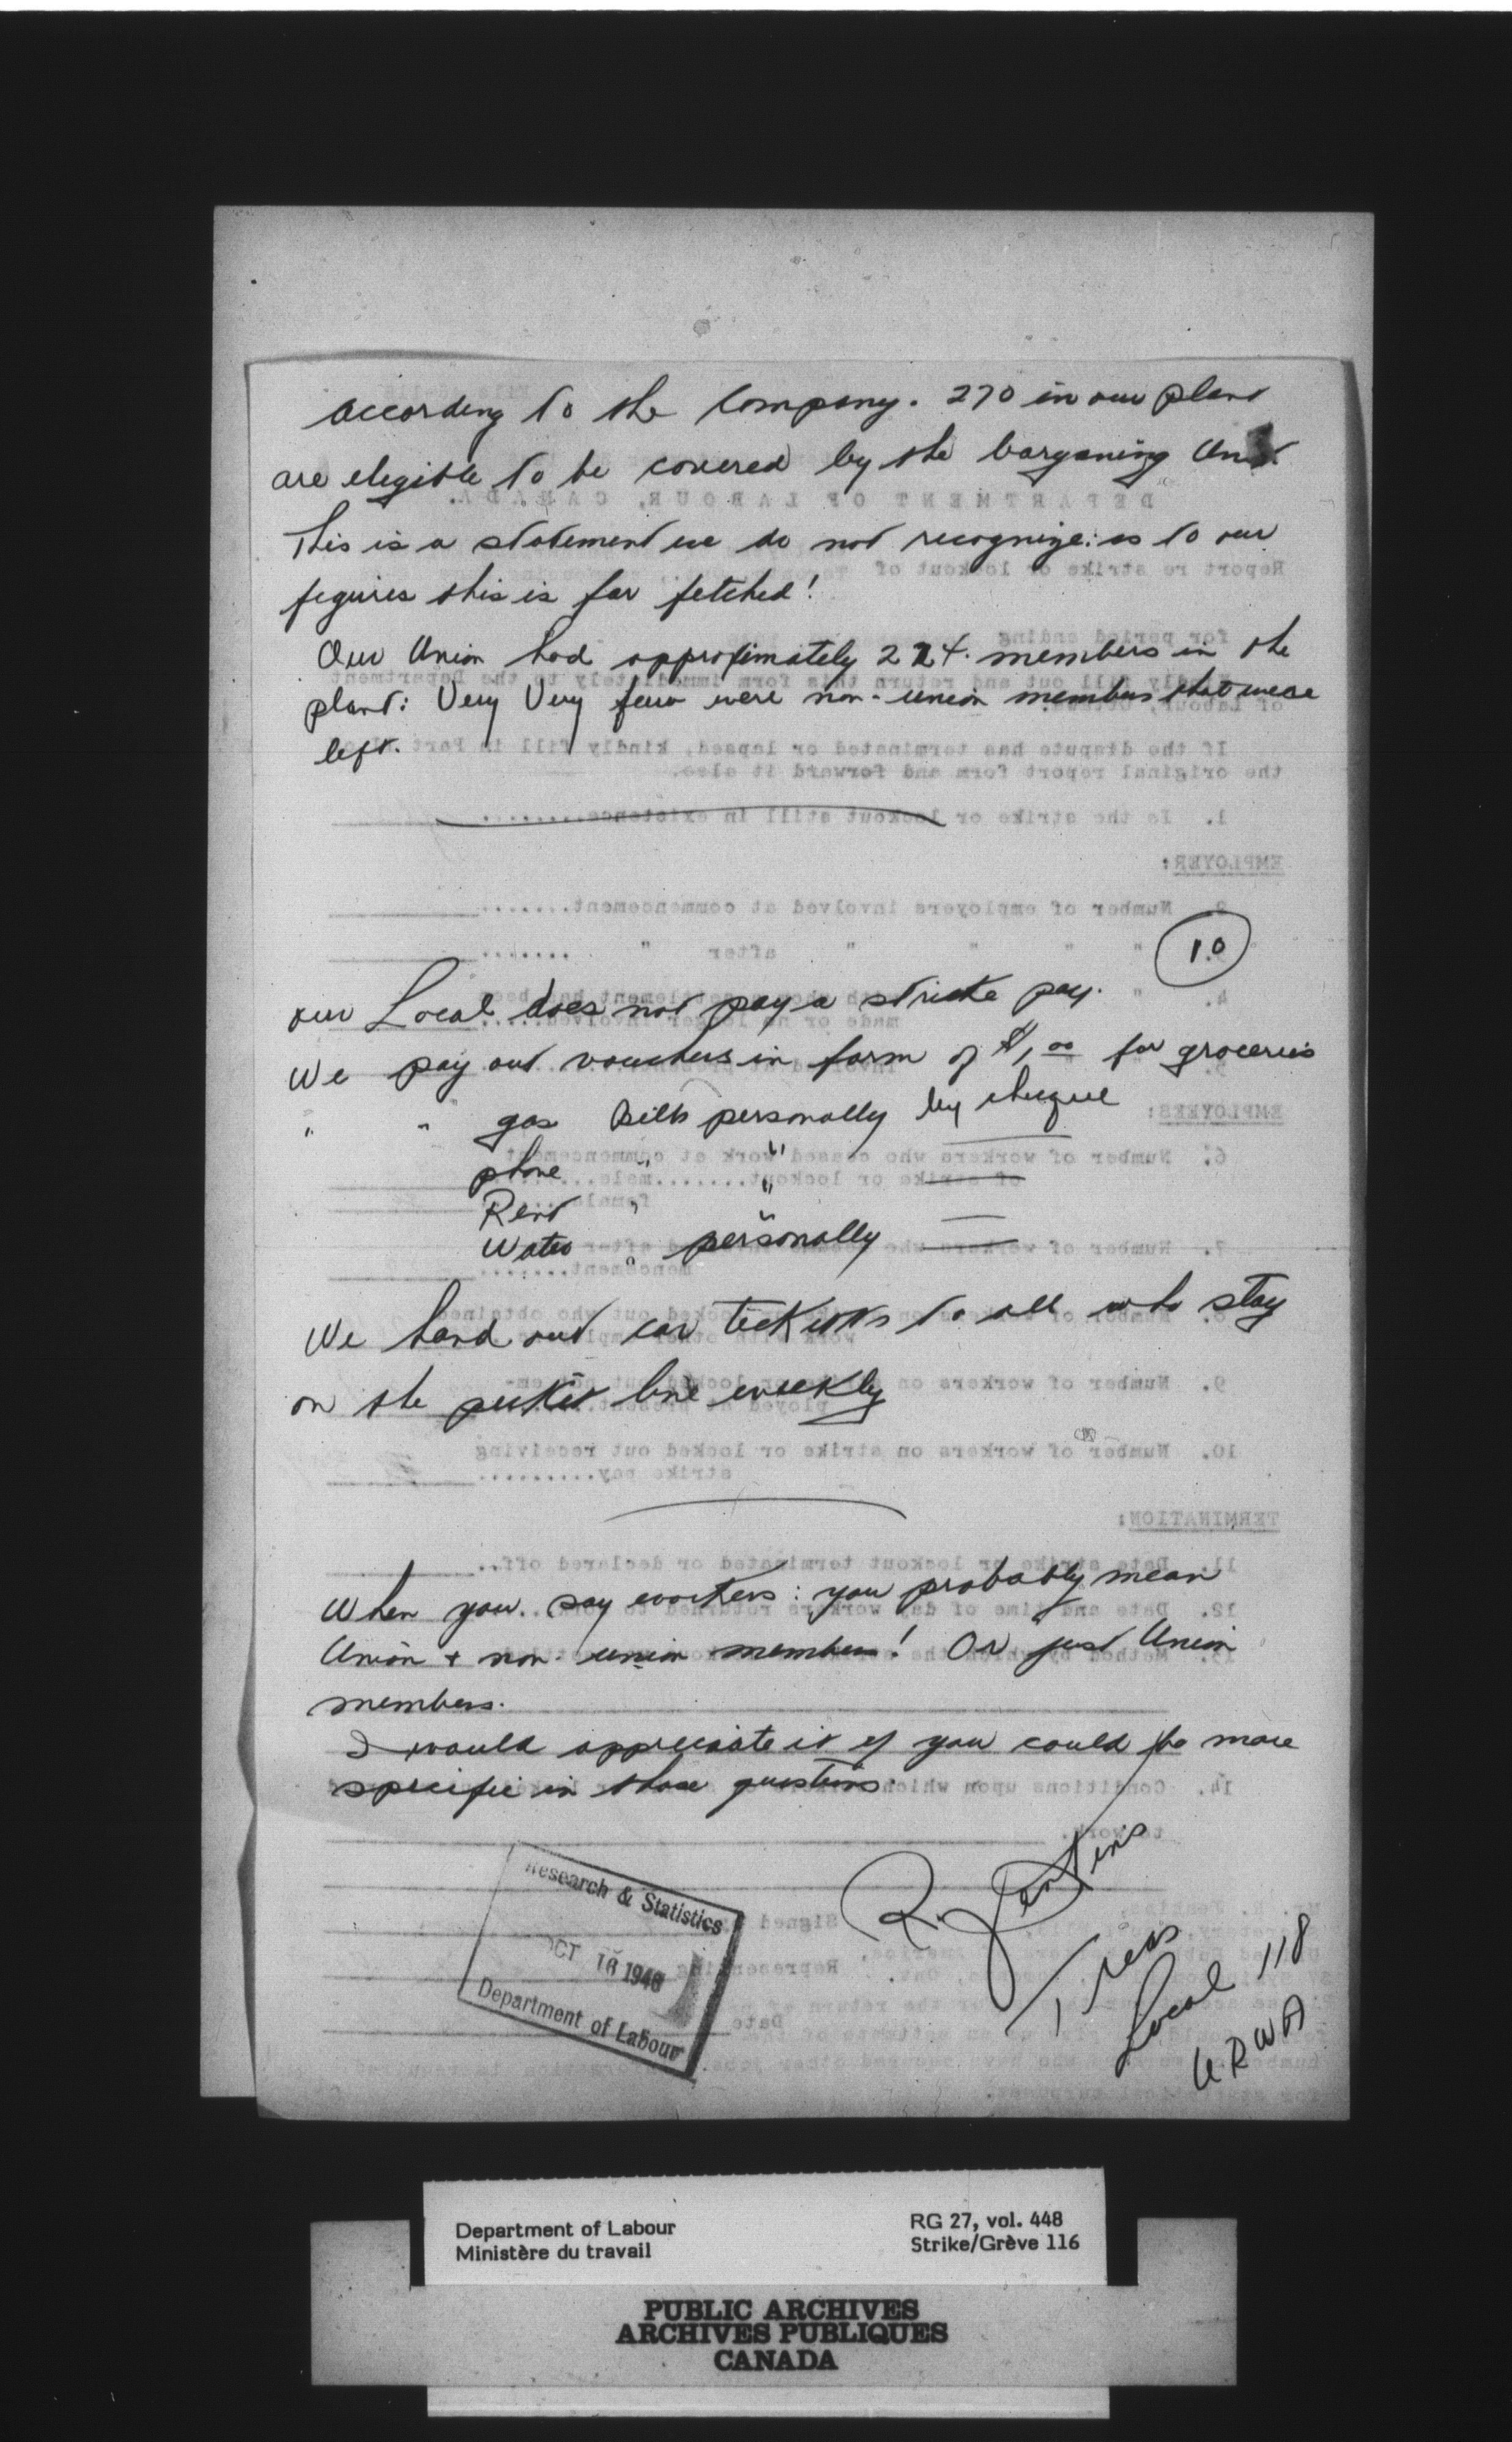 according to the Company. 270 in our plant
are elegible to be covered by the barganing Unit.
This is a statement we do not recognize: as to our
figures this is far fetched!
Our Union had approximately 224. members in the
plant: Very Very few were non-union members that were
left.
10
our Local does not pay a strike pay.
We pay out vouchers in form of $1,00 for groceries
" " gas Bills personally by cheque
phone " "
Rent " "
Water " personally
We hand out car tickets to all who stay
on the picket line weekly
When you say workers: you probably mean
Union + non-union members! Or just Union
members.
I would appreciate it if you could be more
specific in those questions.
R. Jenkins
Treas
Local 118
URWA
Research & Statistics
OCT 16 1946
Department of Labour
Department of Labour
Ministère du travail
RG 27, vol. 448
Strike/Grève 116
PUBLIC ARCHIVES
ARCHIVES PUBLIQUES
CANADA